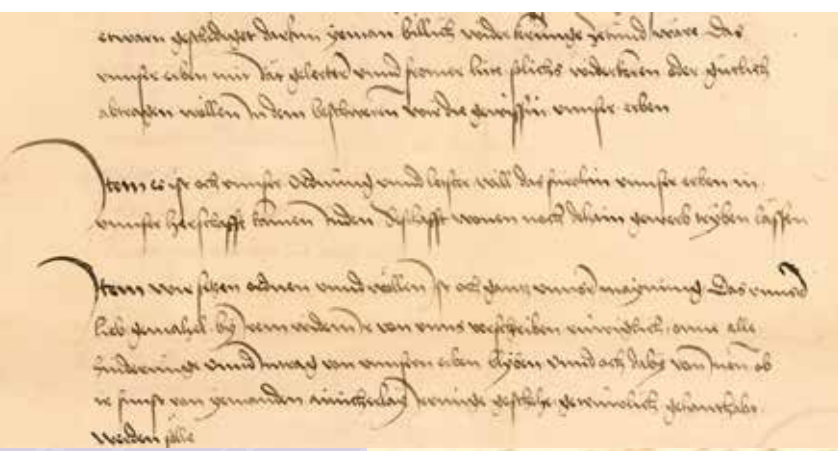 etwarn geschediget darumb yeman billich widerkerunge zetund wäre Das
unnser erben mit Rät gelerter unnd fromer lüte solichs widerkeren oder gütlich
abtragen wöllen In dem beschweren wir die gewissin unnser erben
Item es ist och unnser Ordnung unnd letster will das fürohin unnser erben in
unnser herschafft kainen Juden Seßhafft wonen noch dehain gewerb tryben lässen
Item wir setzen ordnen unnd wöllen Ist och gantz unnser maynung Das unnser
lieb gemahel by irem widem Ir von unns verschriben rüwiglich onne alle
hinderunge unnd Intrag von unnsern erben blyben unnd och daby von Inen ob
ir sunst von yemanden ainicherlay Irrunge geschehe getrüwlich gehanthabt
werden sölle